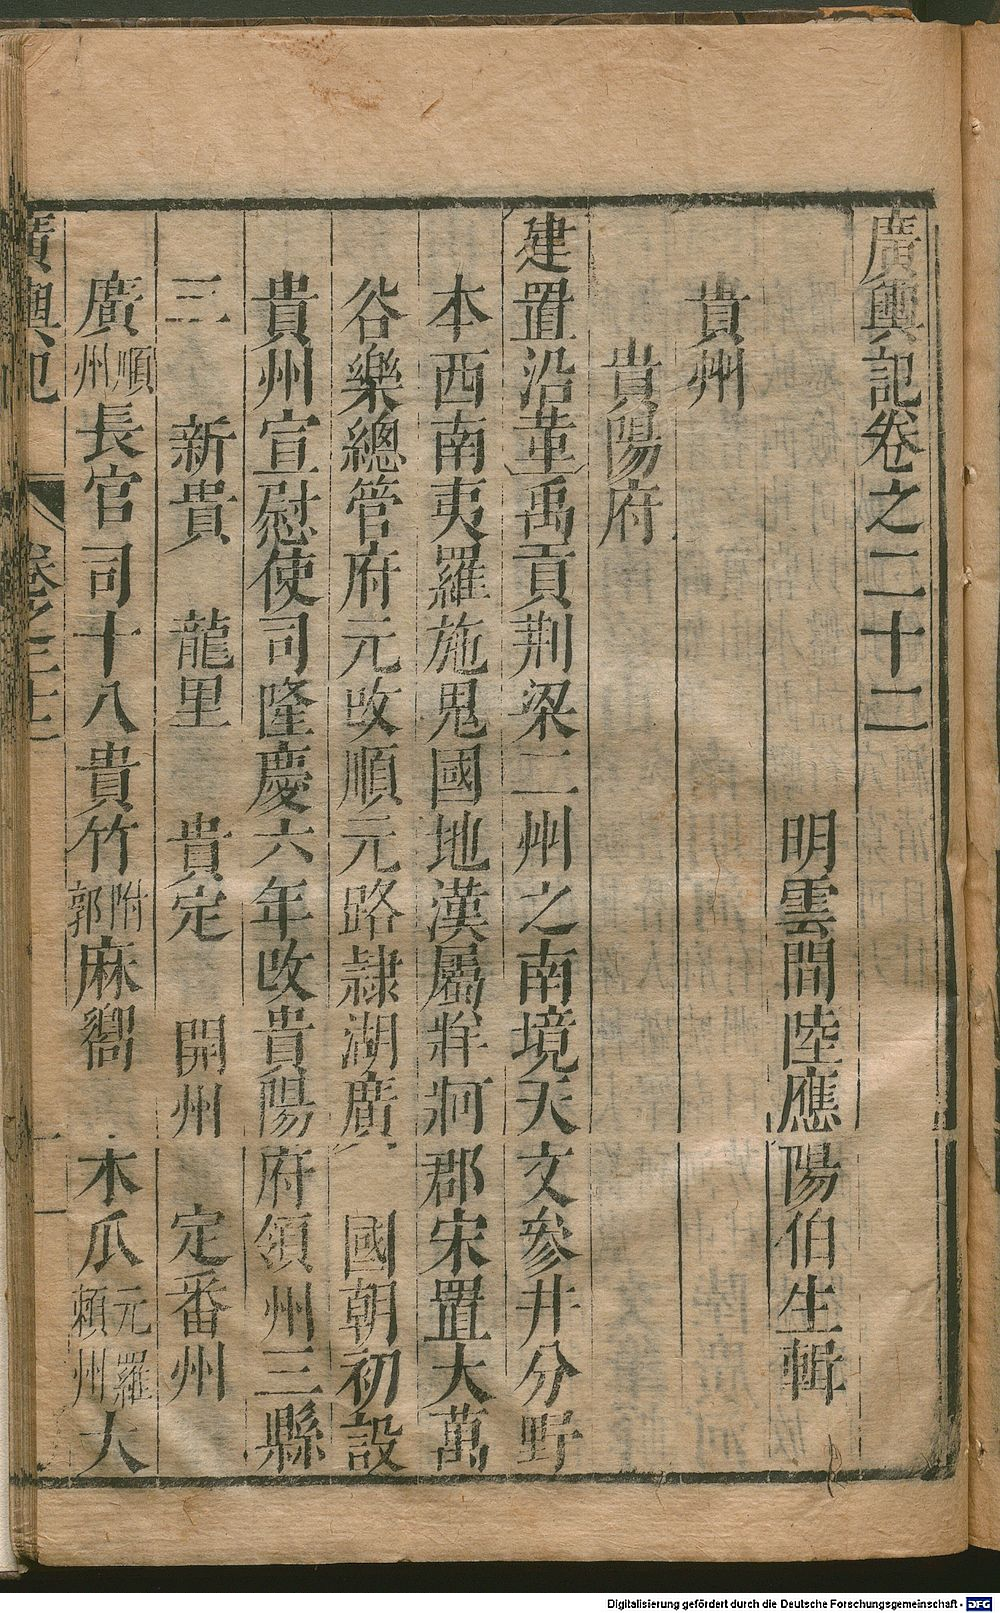 廣輿記卷之二十二
明雲間陸應陽伯生輯
貴州
貴陽府
建置沿革禹貢荆梁二州之南境天文參井分野
本西南夷羅施鬼國地漢屬牂牁郡宋置大萬
谷樂總管府元改順元路隸湖廣 國朝初設
貴州宣慰使司隆慶六年改貴陽府領州三縣
三 新貴 龍里 貴定 開州 定番州
廣順州長官司十八貴竹附郭麻嚮 木瓜元羅賴州大
廣輿記 卷之二十二 一
Digitalisierung gefördert durch die Deutsche Forschungsgemeinschaft - DFG